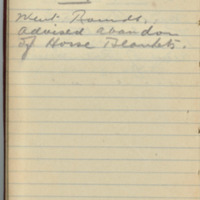 Went Rounds.
Advised abandon
of Horse Blankets.